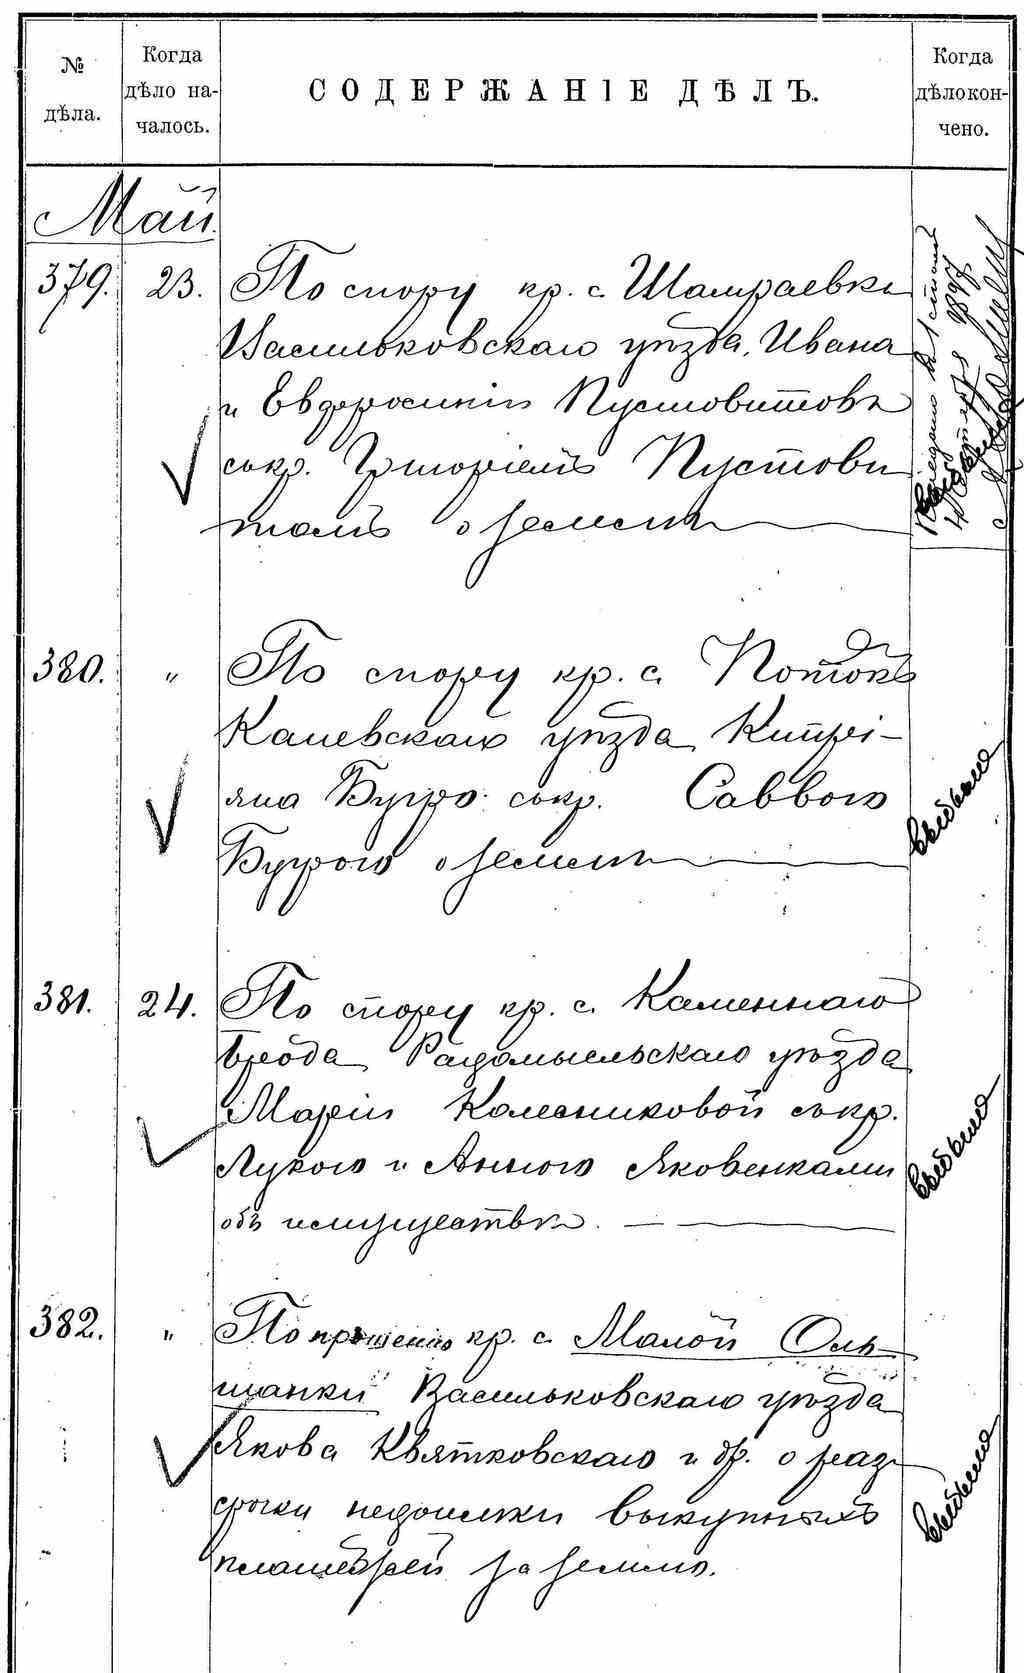 № дѣла.
Когда дѣло началось.
СОДЕРЖАНІЕ ДѢЛЪ.
Когда дѣло кончено.
Май.
379. 23. По спору кр. с. Шамраевки
Васильковскаго уѣзда, Ивана
и Евфросиніи Пустовитовъ
съ кр. Григоріемъ Пустови
томъ о землѣ
380. " По спору кр. с. Потокъ
Каневскаго уѣзда Кипрі-
яна Бугро съ кр. Саввою
Бугрого о землѣ
выбыло
381. 24. По спору кр. с. Каменнаго
Брода Радомысльскаго уѣзда
Маріи Колесниковой съ кр.
Лукою и Анною Яковенками
объ имуществѣ.
выбыло
382. " По прошенію кр. с. Малой Оль-
шанки Васильковскаго уѣзда
Якова Квятковскаго и др. о раз-
срочки недоимки выкупныхъ
платежей за землю.
выбыло